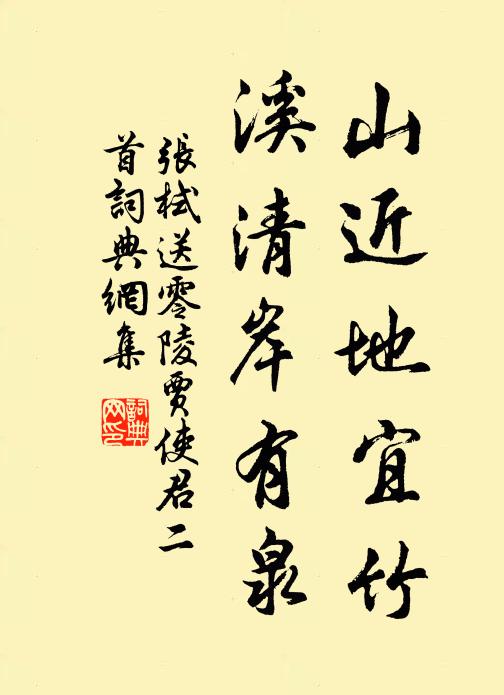 山近地宜竹
溪清岸有泉
張栻送零陵賈使君二
首詞典網集
詞典
网印